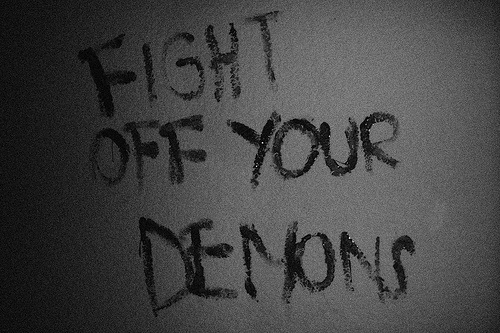 FIGHT
OFF YOUR
DEMONS